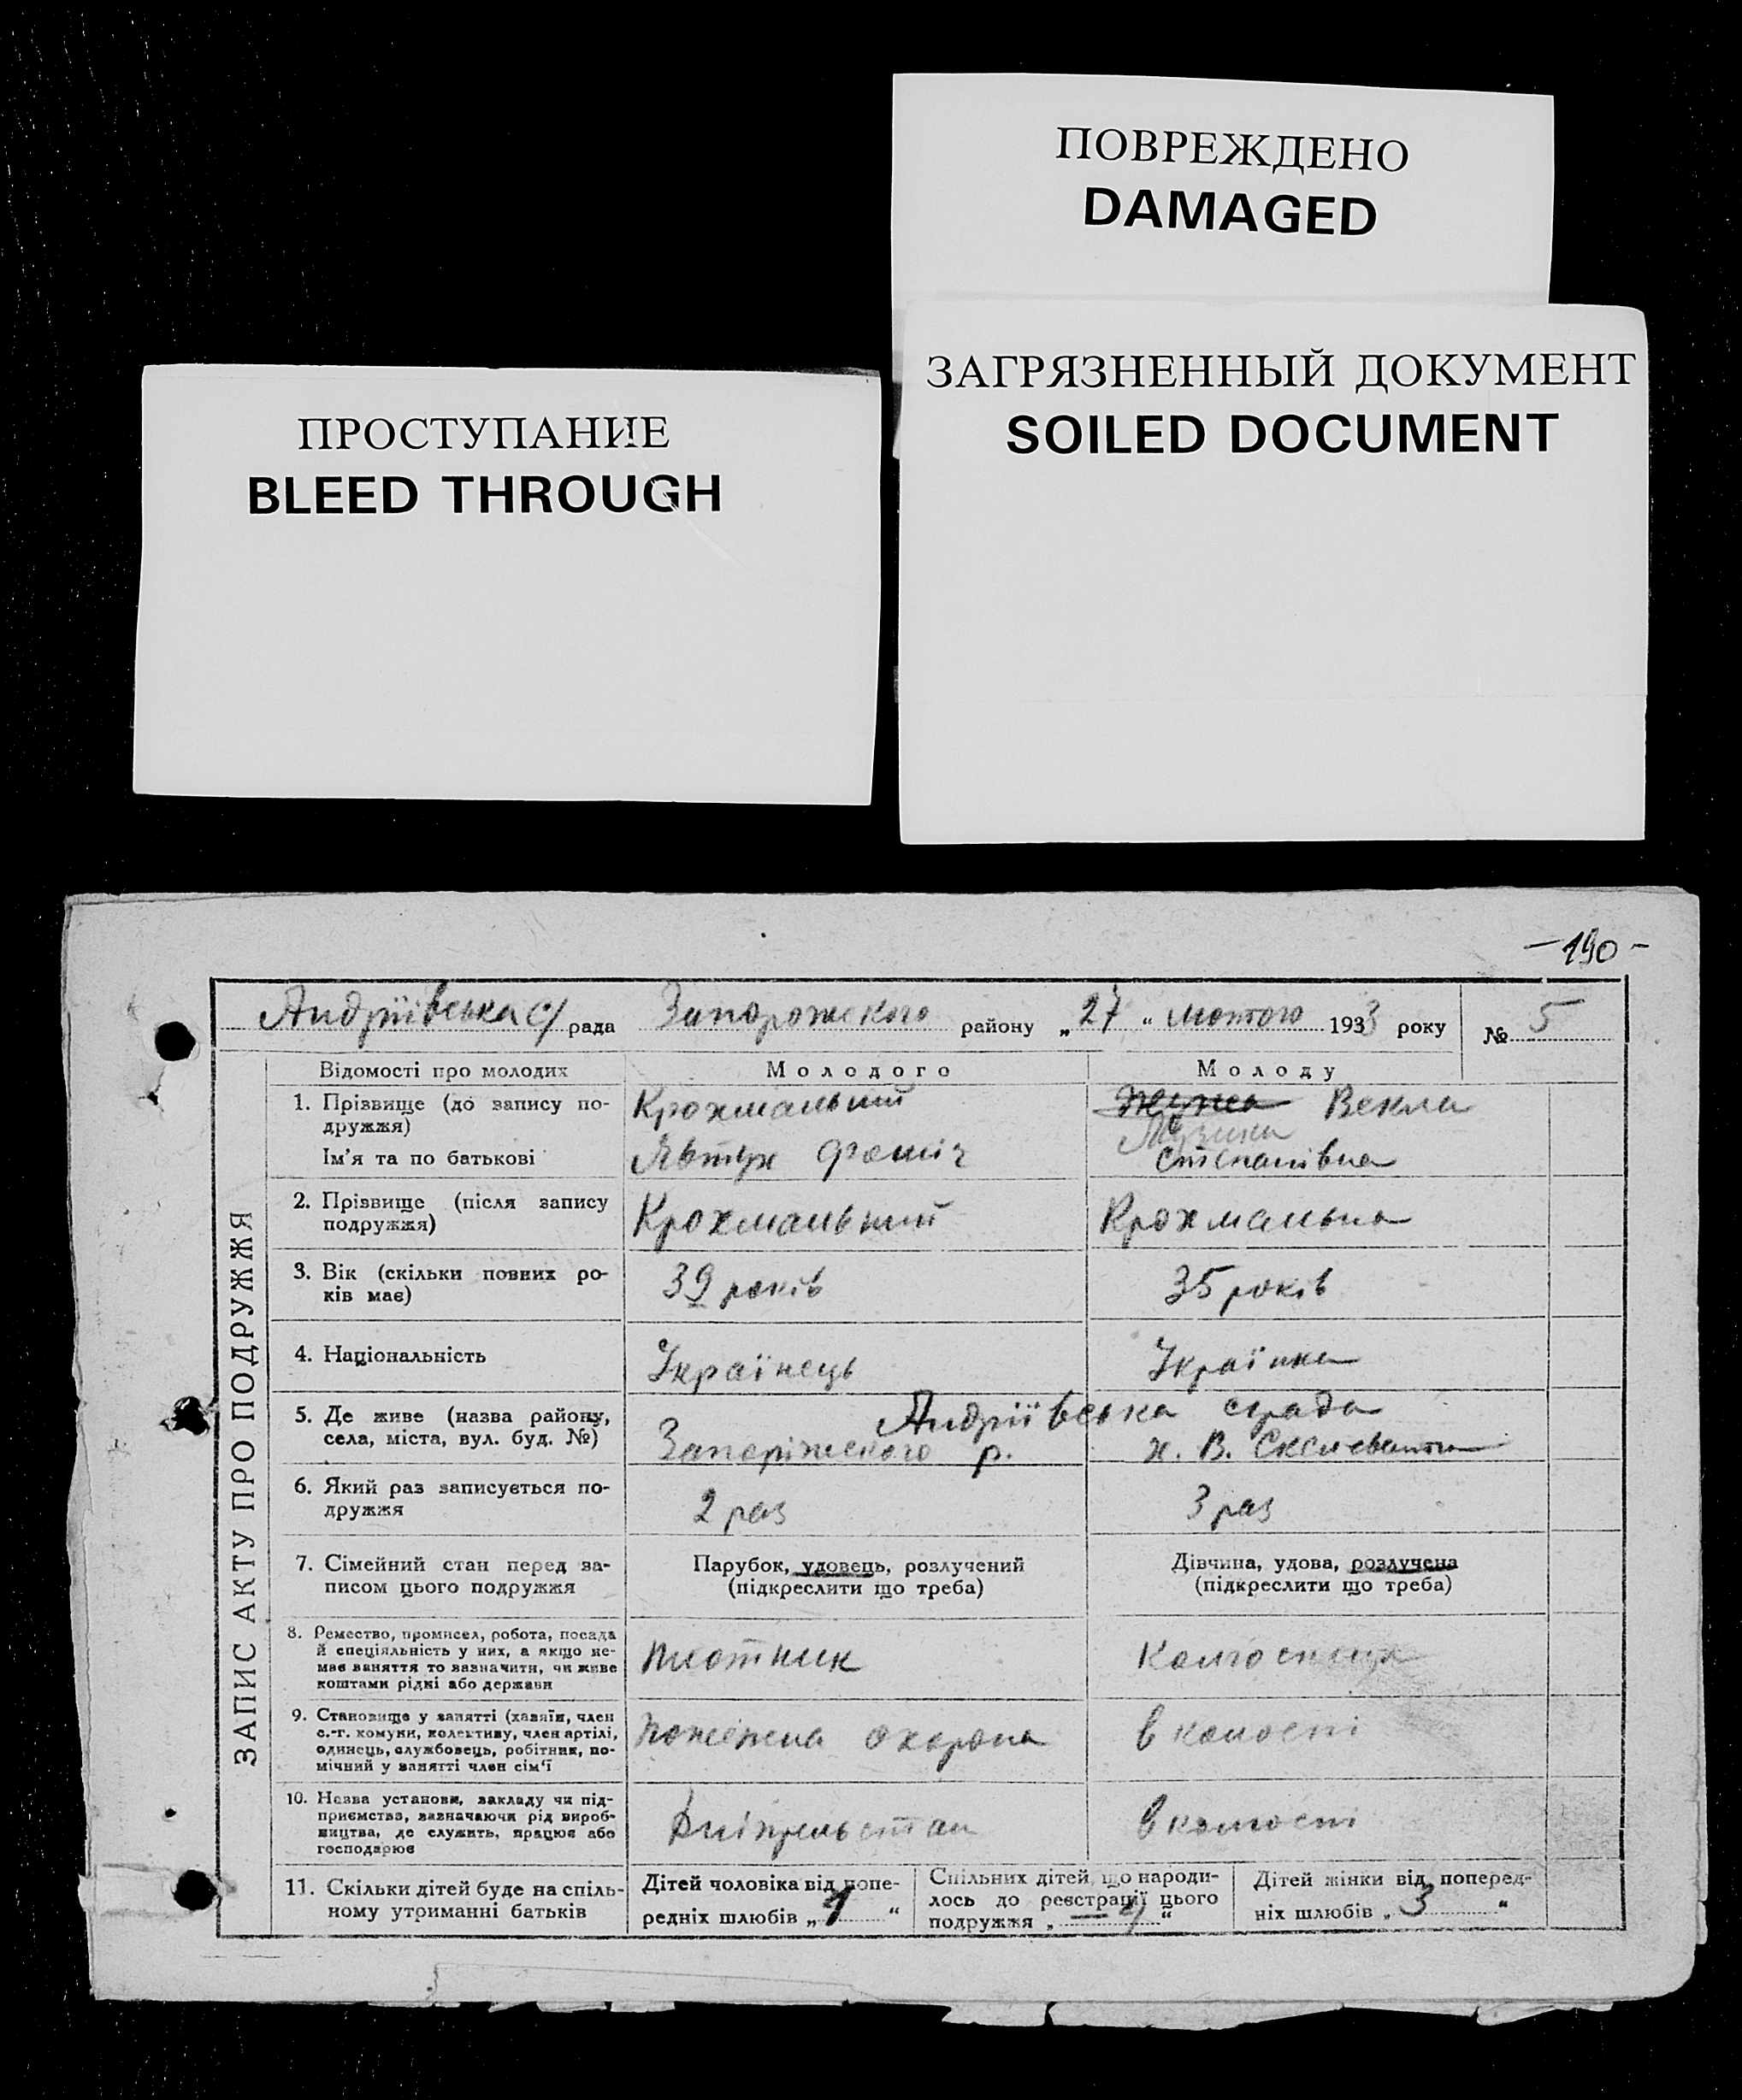 ПОВРЕЖДЕНО
DAMAGED
ЗАГРЯЗНЕННЫЙ ДОКУМЕНТ
SOILED DOCUMENT
ПРОСТУПАНИЕ
BLEED THROUGH
— 190 -
Андріївська с/рада Запорожского району „27“ лютого 1933 року № 5
ЗАПИС АКТУ ПРО ПОДРУЖЖЯ
Відомості про молодих Молодого Молоду
1. Прізвище (до запису по- Крохмальний Векла
дружжя)
Ім'я та по батькові Явтух Фоміч Степанівна
2. Прізвище (після запису Крохмальний Крохмальна
подружжя)
3. Вік (скільки повних ро- 39 років 35 років
ків має)
4. Національність Українець Українка
5. Де живе (назва району, Андріївська срада
села, міста, вул. буд. №) Запоріжского р. х. В.
6. Який раз записується по- 2 раз 3 раз
дружжя
7. Сімейний стан перед за- Парубок, удовець, розлучений Дівчина, удова, розлучена
писом цього подружжя (підкреслити що треба) (підкреслити що треба)
8. Ремество, промисел, робота, посада
й спеціяльність у них, а якщо не- плотник
має заняття то зазначити, чи живе
коштами рідні або держави
9. Становище у занятті (хазяїн, член
с.-г. комуни, колективу, член артілі, пожежна охорона в колоспі
одинець, службовець, робітник, по-
мічний у занятті член сім'ї
10. Назва установи, закладу чи під-
приємства, зазначаючи рід вироб- Дніпрельстан в колгоспі
ництва, де служить, працює або
господарює
11. Скільки дітей буде на спіль- Дітей чоловіка від попе- Спільних дітей, що народи- Дітей жінки від поперед-
ному утриманні батьків редніх шлюбів „1“ лось до реєстрації цього ніх шлюбів „3“
подружжя „ “